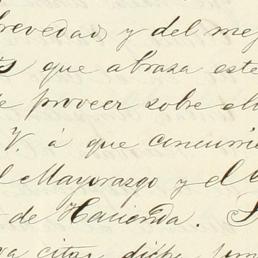 brevedad, y del mej
s que abraza este
e proveer sobre el
V. á que concurri
l Mayorazgo y el
de Hacienda. S
va citar dicha jun